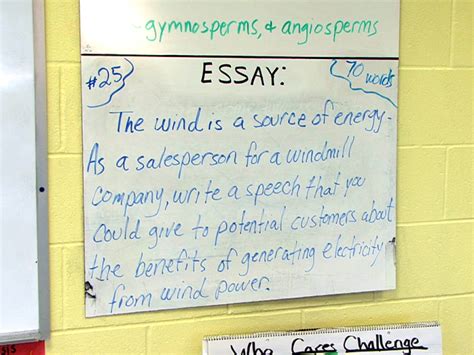 -gymnosperms, & angiosperms
#25
ESSAY:
70 words
The wind is a source of energy-
As a salesperson for a windmill
company, write a speech that you
could give to potential customers about
the benefits of generating electricity
from wind power.
Who Cares Challenge